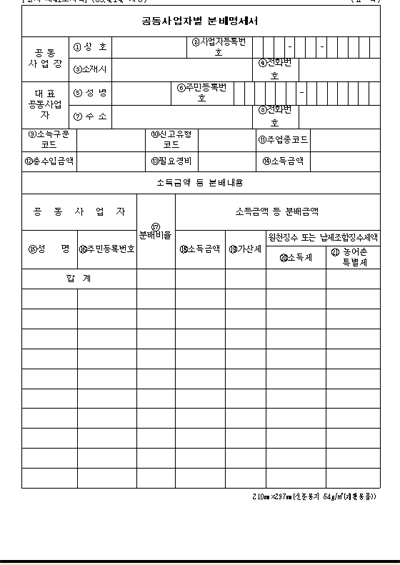 공동사업자별 분배명세서
공 동
사 업 장
①상 호
②사업자등록번
호
③소재시
④전화번
호
대 표
공동사업
자
⑤성 명
⑥주민등록번
호
⑦주 소
⑧전화번
호
⑨소득구분
코드
⑩신고유형
코드
⑪주업종코드
⑫총수입금액
⑬필요경비
⑭소득금액
소득금액 등 분배내용
공 동 사 업 자
⑰
분배비율
소득금액 등 분배금액
⑮성 명
⑯주민등록번호
⑱소득금액
⑲가산세
원천징수 또는 납세조합징수세액
⑳소득세
㉑ 농어촌
특별세
합 계
210㎜×297㎜(신문용지 54g/㎡(재활용품))